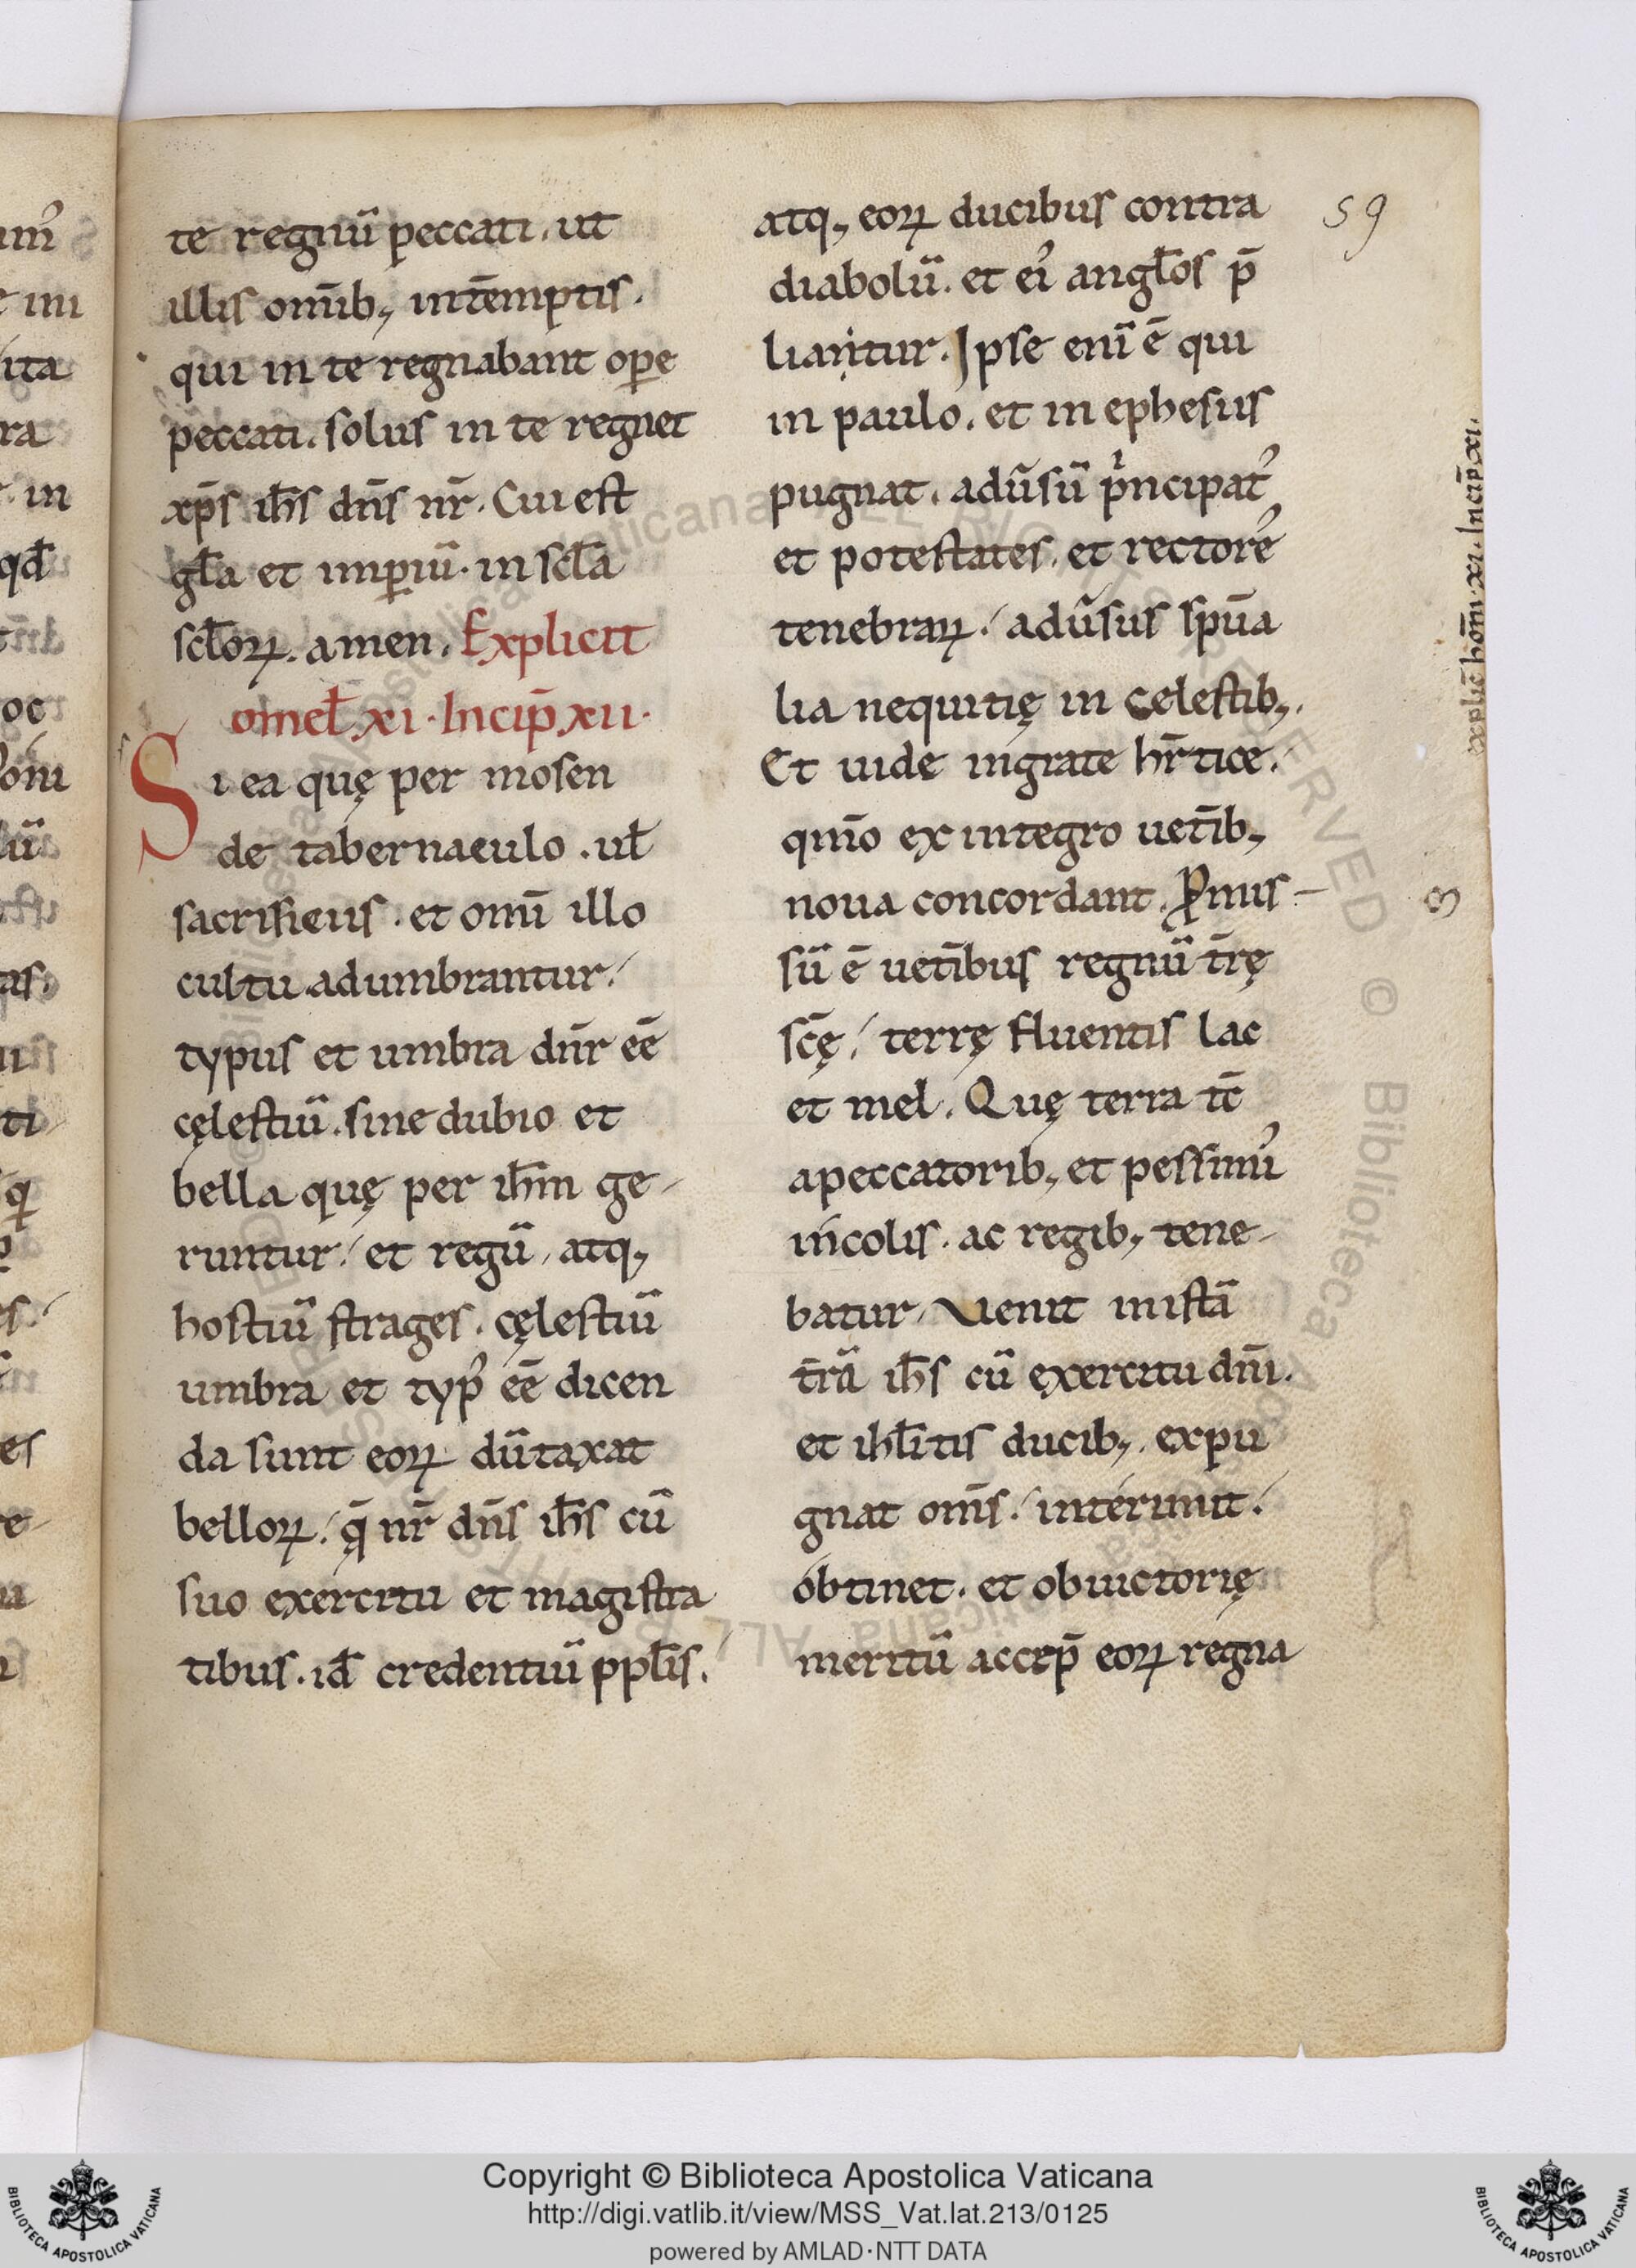 te regnū peccati. ut
illis omīb; intēmptis.
qui in te regnabant ope
peccati. solus in te regnet
xp̄s ih̄s dn̄s nr̄. Cui est
gl̄a et impiū. in scl̄a
scl̄oꝝ. amen. Explicit
omel̄. xi. Incip̄ xii.
Si ea quę per mosen
de tabernaculo. ul̄
sacrificiis. et omī illo
cultu adumbrantur.
typus et umbra dn̄r eē
cęlestiū. sine dubio et
bella quę per ih̄m ge-
runtur. et regū, atq;
hostiū strages. cęlestiū
umbra et typ᾽ eē dicen
da sunt eoꝝ dūtaxat
belloꝝ. q̨̄ nr̄ dn̄s ih̄s cū
suo exercitu et magistra
tibus. id̄ credentiū ppl̄is.
atq; eoꝝ ducibus contra
diabolū. et ei᾽ angl̄os p̄
liantur. Ipse enī ē qui
in paulo. et in ephesiis
pugnat. adūsū pͥncipat᾽
et potestates. et rectore᾽
tenebraꝝ. adūsus sp̄ua
lia nequitię in celestib;.
Et uide ingrate hr̄tice.
qm̄o ex integro uetīb;
noua concordant. Ꝓmis-
sū ē uetībus regnū tr̄ę
sc̄ę. terrę fluentis lac
et mel. Quę terra tc̄
a peccatorib; et pessimi᾽
incolis. ac regib; tene-
batur. Uenit in istā
tr̄ā ih̄s cū exercitu dn̄i.
et ihl̄itis ducib;. expu
gnat om̄s. interimit.
obtinet. et ob uictorię
meritū accep̄ eoꝝ regna
59
explic̄ hom̄. xi. Incip̄ xi.
Copyright © Biblioteca Apostolica Vaticana
http://digi.vatlib.it/view/MSS_Vat.lat.213/0125
powered by AMLAD·NTT DATA
BIBLIOTECA APOSTOLICA VATICANA
BIBLIOTECA APOSTOLICA VATICANA